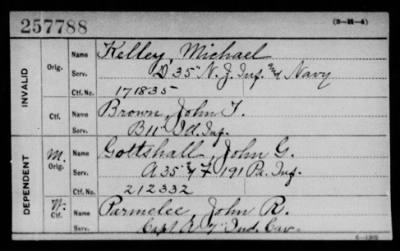 257788
(3-21-4)
INVALID
Orig.
Name Kelley, Michael
Serv. D 35" N. J. Inf. and Navy
Ctf. No. 171835
Ctf.
Name Brown, John T.
Serv. B 11" Ill. Inf.
DEPENDENT
M. Orig.
Name Gottshall, John G.
Serv. A 35" & F 191 Pa. Inf.
Ctf. No. 212332
W. Ctf.
Name Parmelee, John R.
Serv. Capt A 7" Ind. Cav.